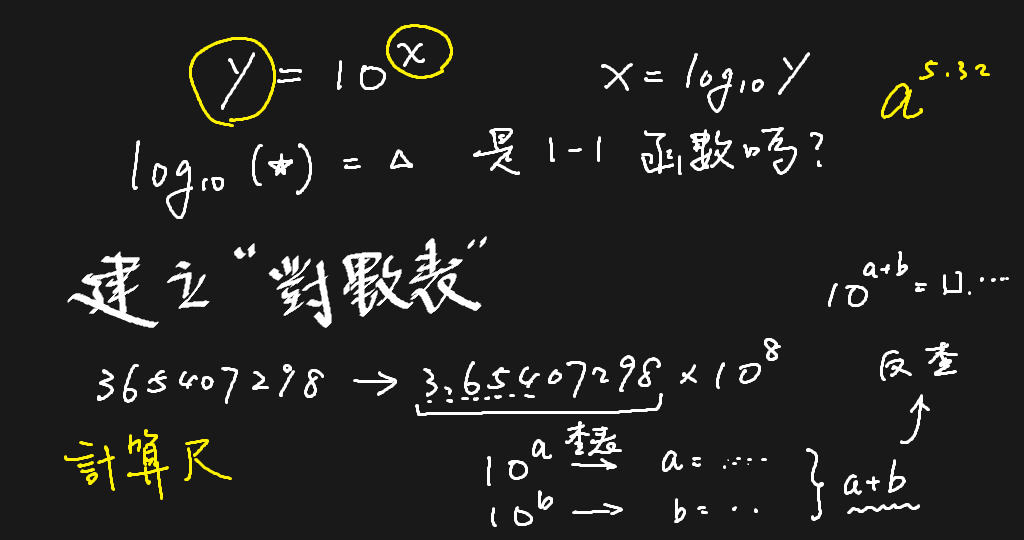 y = 10^x    x = log₁₀ y    a^5.32
log₁₀ (☆) = △ 是 1-1 函數嗎?
建立“對數表”
10^(a+b) = □.....
365407298 → 3.65407298 × 10^8
反查
計算尺
10^a 查表→ a = .....
10^b → b = ..
} a+b